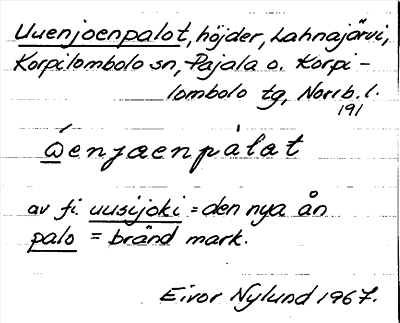 Uuenjoenpalot, höjder, Lahnajärvi,
Korpilombolo sn, Pajala o. Korpi-
lombolo tg, Norrb. l.
191
ώenjaenpàlat
av fi. uusijoki = den nya ån
palo = bränd mark.
Eivor Nylund 1967.